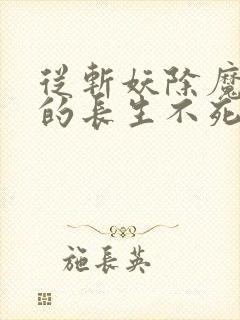 從斬妖除魔
的長生不死
施長英